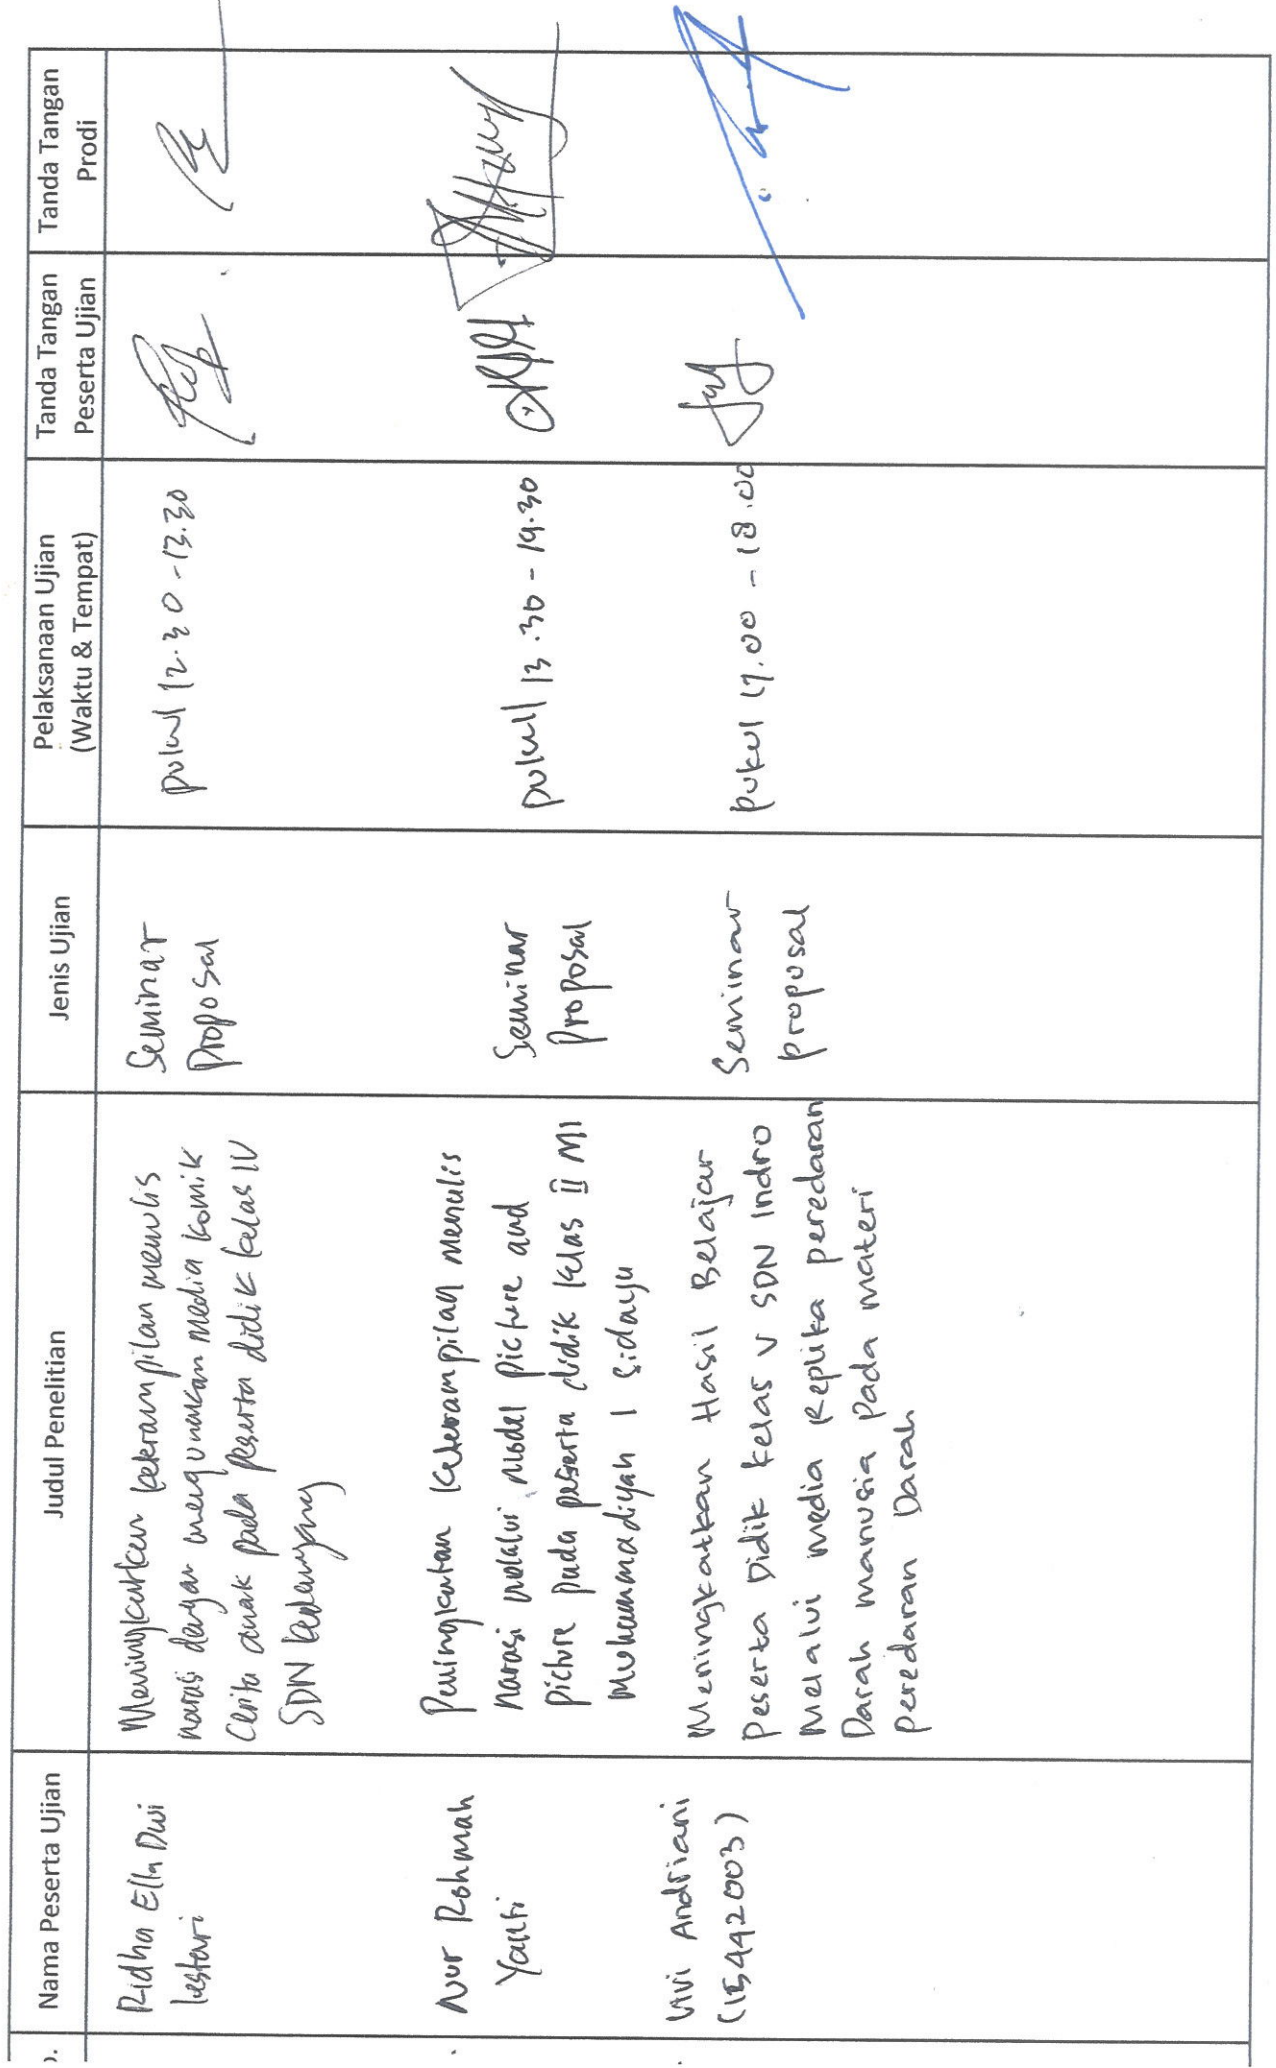 o. Nama Peserta Ujian Judul Penelitian Jenis Ujian Pelaksanaan Ujian (Waktu & Tempat) Tanda Tangan Peserta Ujian Tanda Tangan Prodi
Ridha Ella Dwi
lestari
Meningkatkan keterampilan menulis
narasi dengan mengunakan media komik
cerita anak pada peserta didik kelas IV
SDN kedanyang
Seminar
Proposal
pukul 12.30 - 13.30
Nur Rohmah
Yanti
Peningkatan keterampilan menulis
narasi melalui model picture and
picture pada peserta didik kelas ii MI
Muhammadiyah 1 sidayu
Seminar
Proposal
pukul 13.30 - 14.30
Vivi Andriani
(15442003)
Meningkatkan Hasil Belajar
Peserta Didik kelas V SDN Indro
Melalui media Replika peredaran
Darah manusia Pada materi
peredaran Darah
Seminar
proposal
pukul 17.00 - 18.00